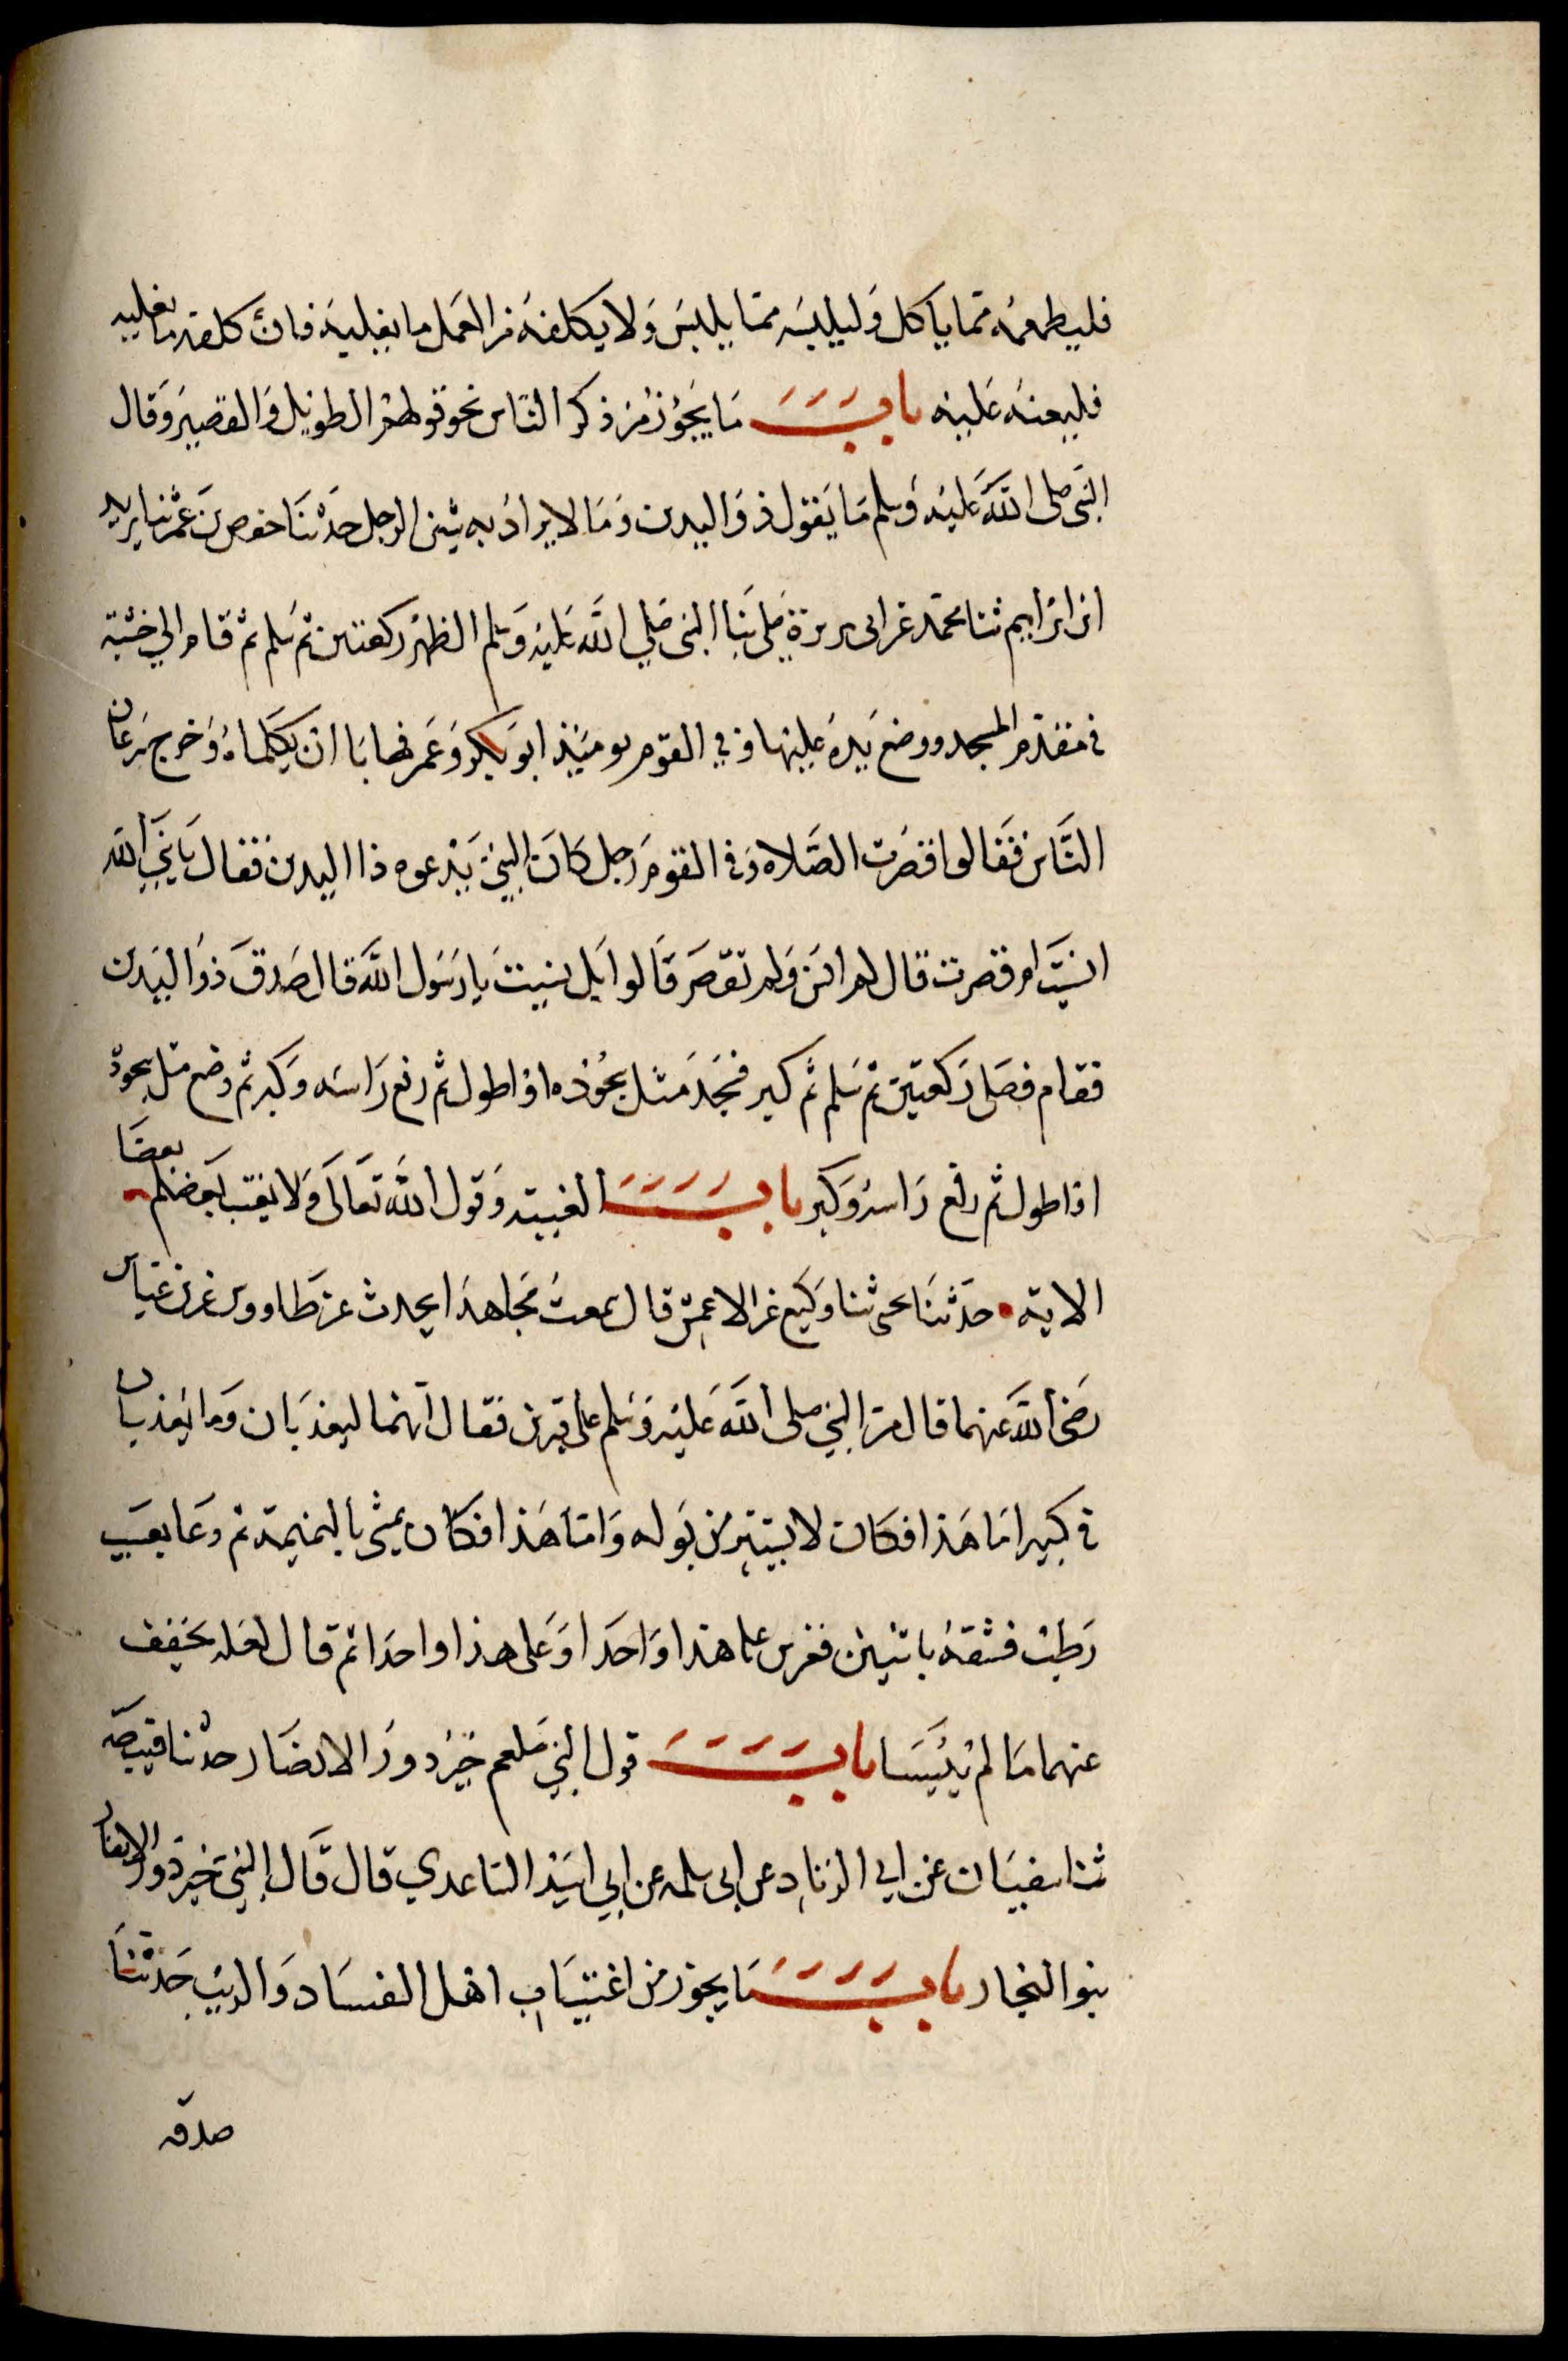 فليطعمه مما ياكل وليلبسه مما يلبس ولا يكلفه من العمل ما يغلبه فان كلفه ما يغلبه
فليعنه عليه باب ما يجوز من ذكر الناس نحو قولهم الطويل والقصير وقال
النبي صلى الله عليه وسلم ما يقول ذو اليدين وما لا يراد به شين الرجل حدثنا حفص بن عمر ثنا يزيد
ابن ابراهيم ثنا محمد عن ابي هريرة صلى بنا النبي صلي الله عليه وسلم الظهر ركعتين ثم سلم ثم قام الي خشبة
في مقدم المسجد ووضع يده عليها وفي القوم يومئذ ابو بكر وعمر فهابا ان يكلماه وخرج سرعان
الناس فقالوا قصرت الصلاة وفي القوم رجل كان النبي يدعوه ذا اليدين فقال يا نبي الله
انسيت ام قصرت قال لم انس ولم تقصر قالوا بل نسيت يا رسول الله قال صدق ذو اليدين
فقام فصلى ركعتين ثم سلم ثم كبر فسجد مثل سجوده او اطول ثم رفع راسه وكبر ثم وضع مثل سجوده
او اطول ثم رفع راسه وكبر باب الغيبة وقول الله تعالى ولا يغتب بعضكم بعضا
الاية حدثنا يحيى ثنا وكيع عن الاعمش قال سمعت مجاهدا يحدث عن طاووس عن ابن عباس
رضي الله عنهما قال مر النبي صلى الله عليه وسلم على قبرين فقال انهما ليعذبان وما يعذبان
في كبير اما هذا فكان لا يستتر من بوله واما هذا فكان يمشي بالنميمة ثم دعا بعسيب
رطب فشقه باثنين فغرس على هذا واحدا وعلى هذا واحدا ثم قال لعله يخفف
عنهما ما لم ييبسا باب قول النبي صلعم خير دور الانصار حدثنا قبيصة
ثنا سفيان عن ابي الزناد عن ابي سلمه عن ابي اسيد الساعدي قال قال النبي خير دور الانصار
بنو النجار باب ما يجوز من اغتياب اهل الفساد والريب حدثنا
صدقه